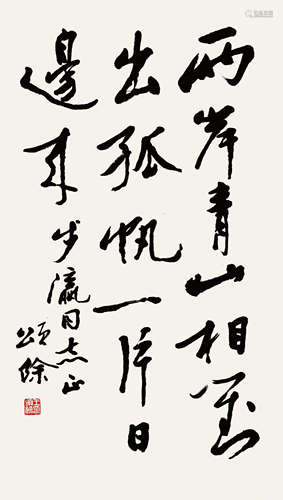 两岸青山相对
出孤帆一片日
边来步瀛同志正
颂余